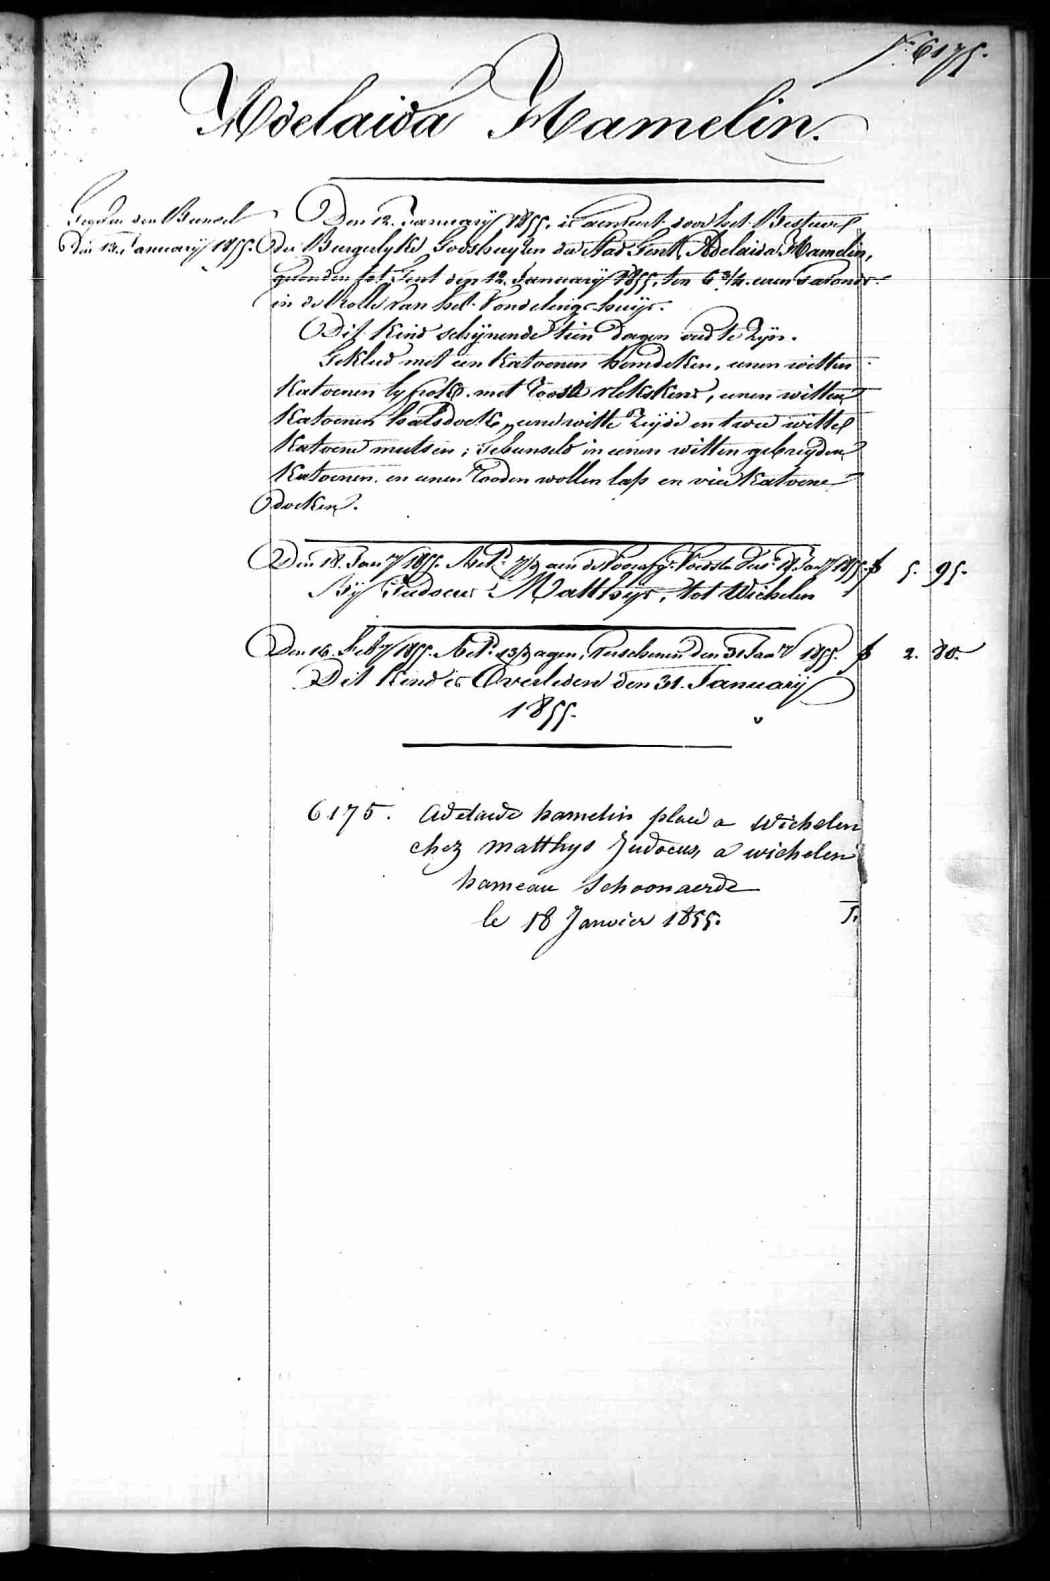 N.º 6175.
Adelaida Hamelin.
den Bunsel
Den 12. January 1855.
Den 12. January 1855, is aenveert door het Bestuur
der Burgerlyke Godshuyzen der Stad Gent, Adelaida Hamelin,
gevonden tot Gent den 12. January 1855, ten 6 3/4 uren 's avonds
in de Rolle van het Vondelings-huys.
Dit Kind schynende tien dagen oud te zyn.
Gekleed met een Katoenen hemdeken, eenen witten
Katoenen lyfrok met roode vlekskens, eenen witten
Katoenen halsdoek, eene witte zyde en twee witte
Katoene mutsen; Gebunseld in eenen witten gebreyden
Katoenen en eenen rooden wollen lap en vier Katoene
doeken.
Den 18. Jan.ry 1855. 1855. f 5. 95.
By Judocus Matthys, tot Wichelen
Den 16. Feb.ry 1855. dagen, verschenen den 31 Jan.ry 1855. f 2. 80.
Dit Kind is Overleden den 31. January
1855.
6175. Adelaide hamelin placé a Wichelen
chez Matthys Judocus, a wichelen
hameau Schoonaerde
le 18 Janvier 1855. 5.